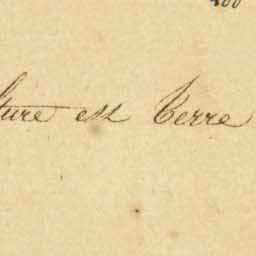 ture est Terre